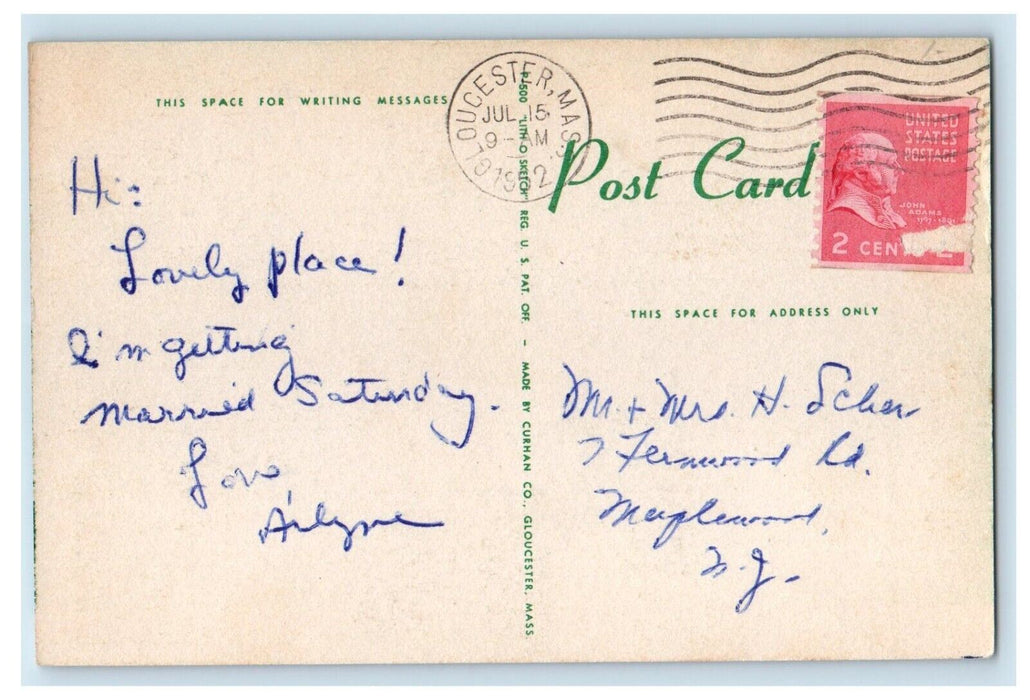 THIS SPACE FOR WRITING MESSAGES
Hi:
Lovely place!
I'm getting
married Saturday.
Love
Arlyne
P/500 "LITH-O-SKETCH" REG. U. S. PAT. OFF. - MADE BY CURHAN CO., GLOUCESTER, MASS.
GLOUCESTER, MASS.
JUL 15
9 - AM
1952
Post Card
UNITED
STATES
POSTAGE
JOHN
ADAMS
1797-1801
2 CEN
THIS SPACE FOR ADDRESS ONLY
Mr. + Mrs. H. Scher
7 Fernwood Rd.
Maplewood,
N.J.